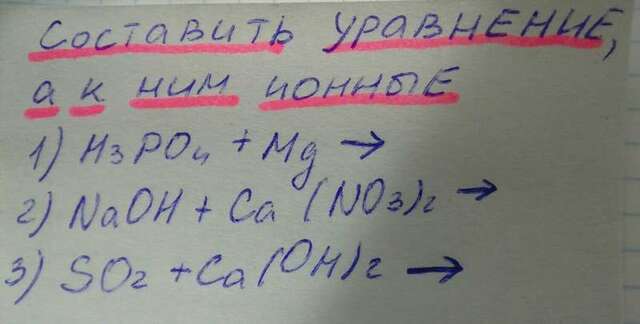 Составить уравнение,
а к ним ионные
1) H3PO4 + Mg →
2) NaOH + Ca (NO3)2 →
3) SO2 + Ca(OH)2 →